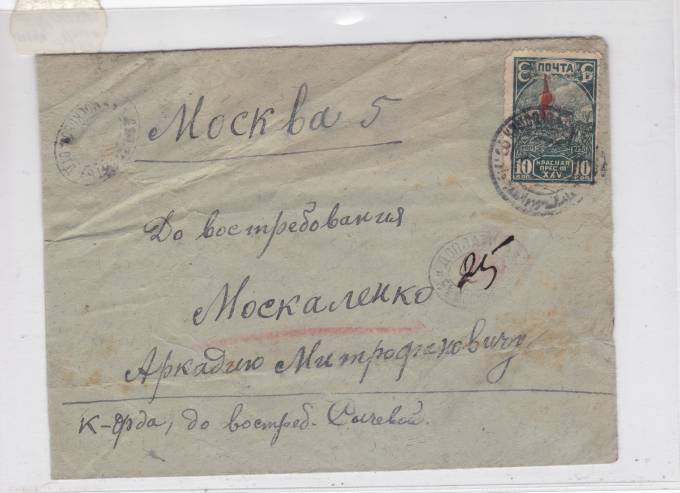 ПОЧТА
10 КРАСНАЯ ПРЕСНЯ 10
КОП. XXV КОП.
Москва 5
До востребования
ДОПЛАТИТЬ
25
Москаленко
Аркадию Митрофановичу
К-Орда, до востреб. Сычевой.